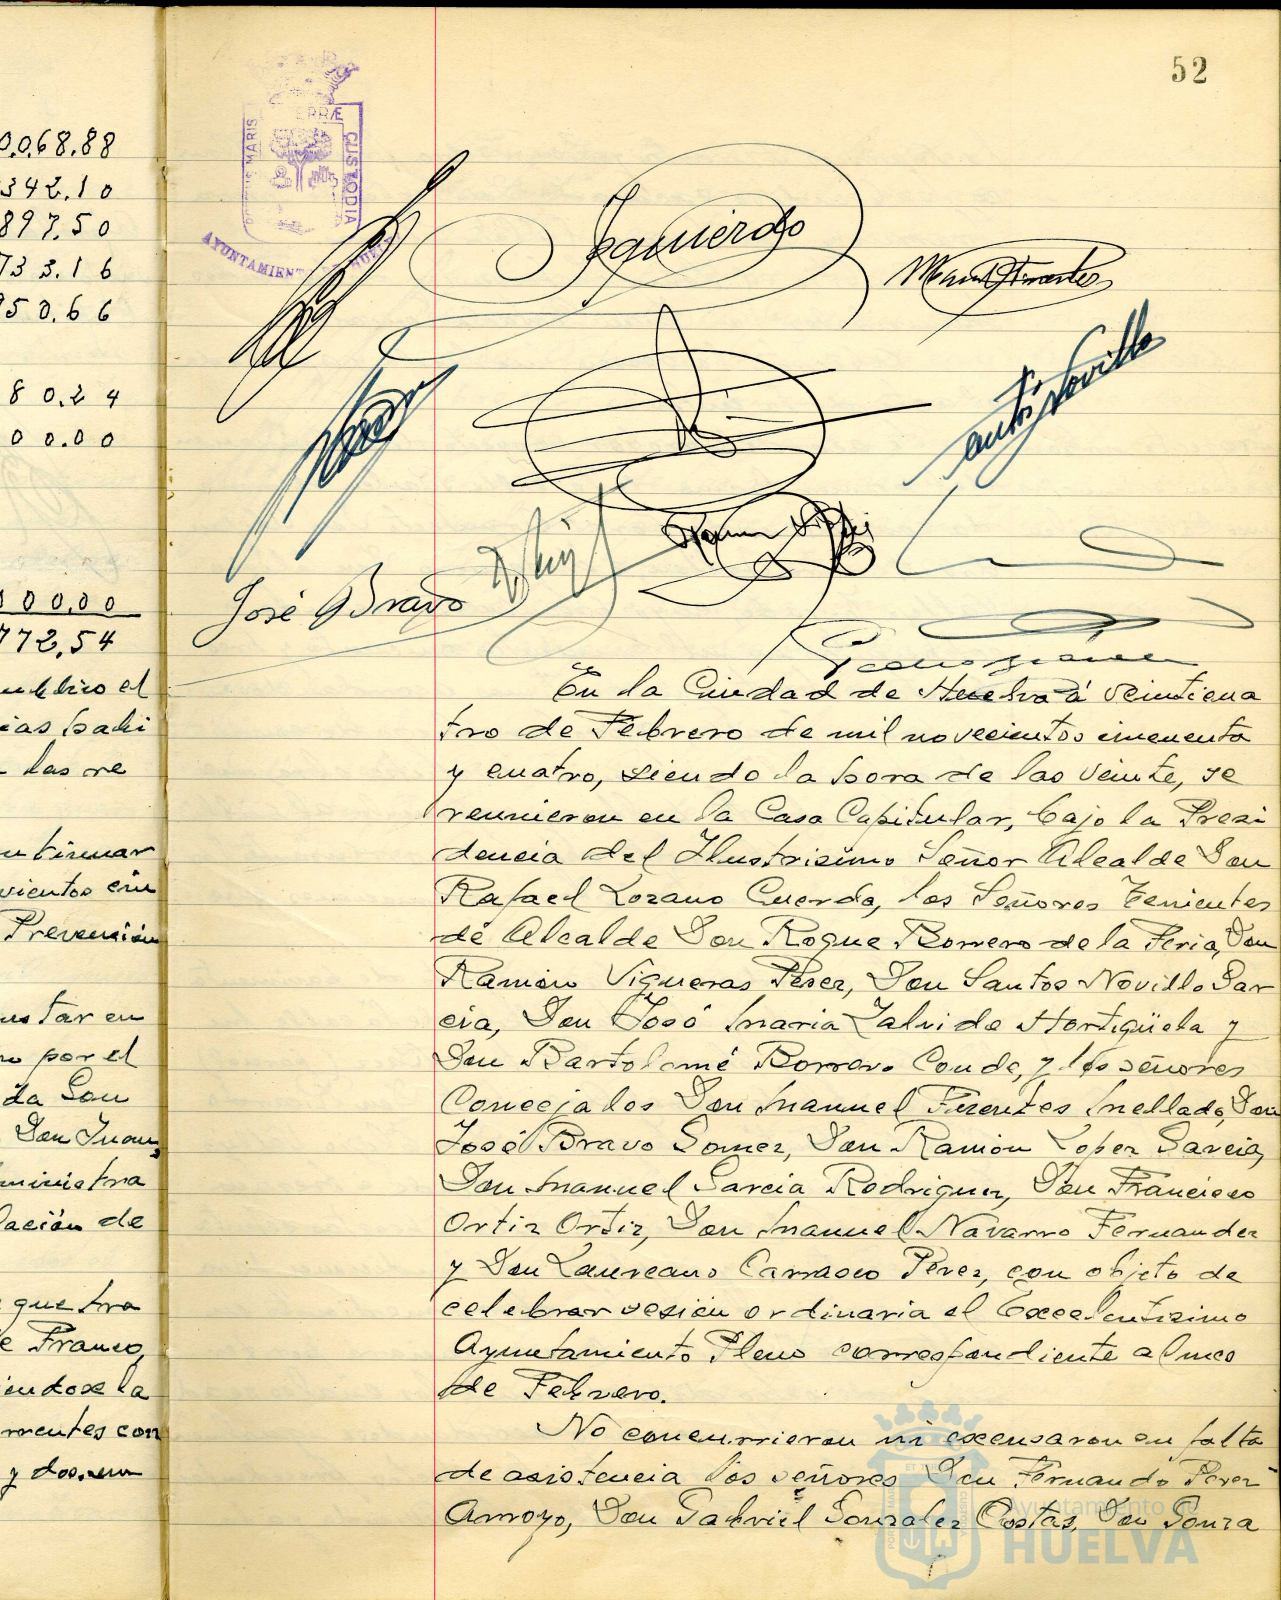 52
0.068.88
342.10
897.50
733.16
950.66
80.24
00.00
000,00
772,54
el
las re
Prevención
por el
da Don
Don Juan
lación de
que tra
e Franco,
iendose la
rrentes con
y dos,
TERRÆ
MARIS
CUSTODIA
AYUNTAMIENTO
Izquierdo
José Bravo
En la Ciudad de Huelva á veinticua
tro de Febrero de mil novecientos cincuenta
y cuatro, siendo la hora de las veinte, se
reunieron en la Casa Capitular, bajo la Presi
dencia del Ilustrisimo Señor Alcalde Don
Rafael Lozano Cuerda, los Señores Tenientes
de Alcalde Don Roque Borrero de la Feria, Don
Ramón Vigueras Pérez, Don Santos Novillo Gar
cia, Don José Maria Zalvide Hortigüela y
Don Bartolomé Borrero Conde, y los señores
Concejales Don Manuel Fuentes Mellado, Don
José Bravo Gomez, Don Ramón Lopez Garcia,
Don Manuel Garcia Rodriguez, Don Francisco
Ortiz Ortiz, Don Manuel Navarro Fernandez
y Don Laureano Carrasco Pérez, con objeto de
celebrar sesión ordinaria el Excelentisimo
Ayuntamiento Pleno correspondiente al mes
de Febrero.
No concurrieron ni excusaron su falta
de asistencia los señores Don Fernando Perez
Arroyo, Don Gabriel Gonzalez Costas, Don Gonza
Ayuntamiento de
HUELVA